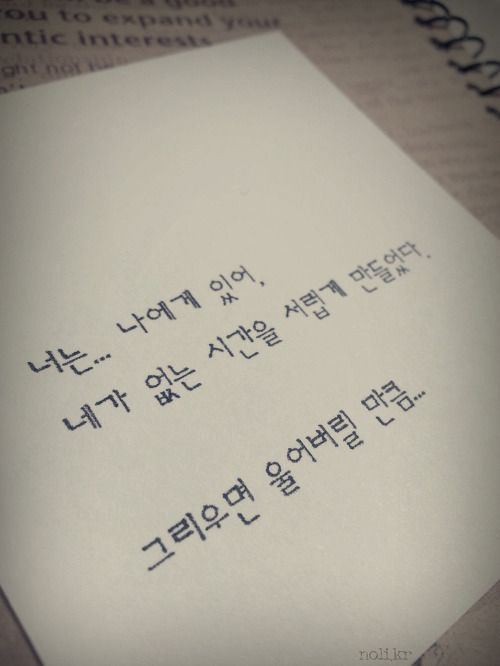 ou to expand your
ntic interests
ght not
너는... 나에게 있어,
네가 없는 시간을 서럽게 만들었다.
그리우면 울어버릴 만큼...
nolikr